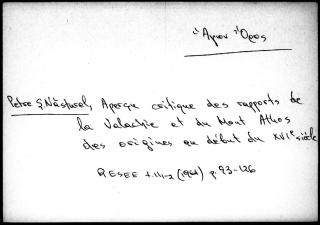 Ἅγιον Ὄρος
Petre Ş. Năsturel, Aperçu critique des rapports de
la Valachie et du Mont Athos
des origines au début du XVIe siècle
RESEE t. II 1-2 (1964) p. 93-126